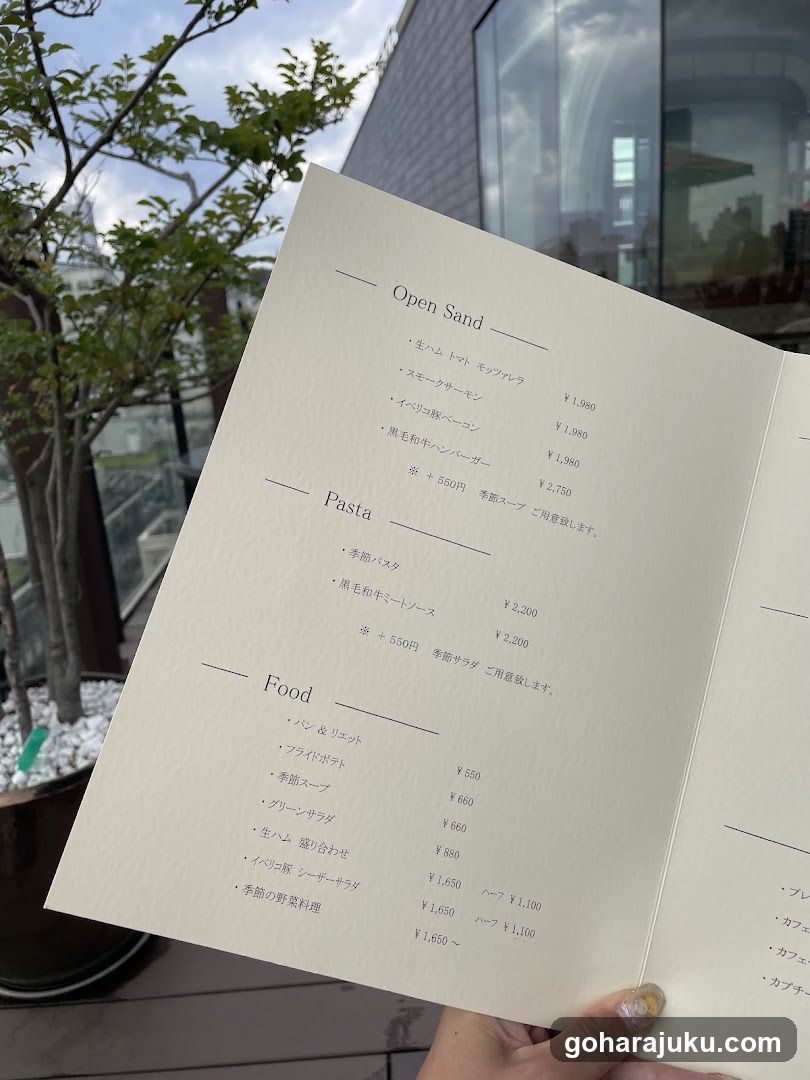 Open Sand
・生ハム トマト モッツァレラ ¥1,980
・スモークサーモン ¥1,980
・イベリコ豚ベーコン ¥1,980
・黒毛和牛ハンバーガー ¥2,750
※ +550円 季節スープ ご用意致します。
Pasta
・季節パスタ ¥2,200
・黒毛和牛ミートソース ¥2,200
※ +550円 季節サラダ ご用意致します。
Food
・パン & リエット ¥550
・フライドポテト ¥660
・季節スープ ¥660
・グリーンサラダ ¥880
・生ハム 盛り合わせ ¥1,650 ハーフ ¥1,100
・イベリコ豚 シーザーサラダ ¥1,650 ハーフ ¥1,100
・季節の野菜料理 ¥1,650～
・ブレ
・カフェ
・カフェ
・カプチー
goharajuku.com